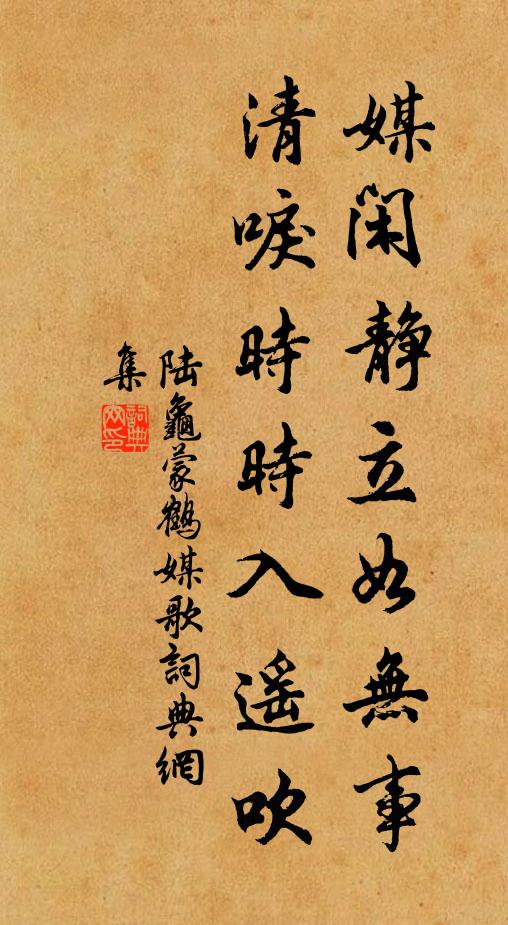 媒閑靜立如無事
清唳時時入遥吹
陆龜蒙鶴媒歌詞典網
集
詞典